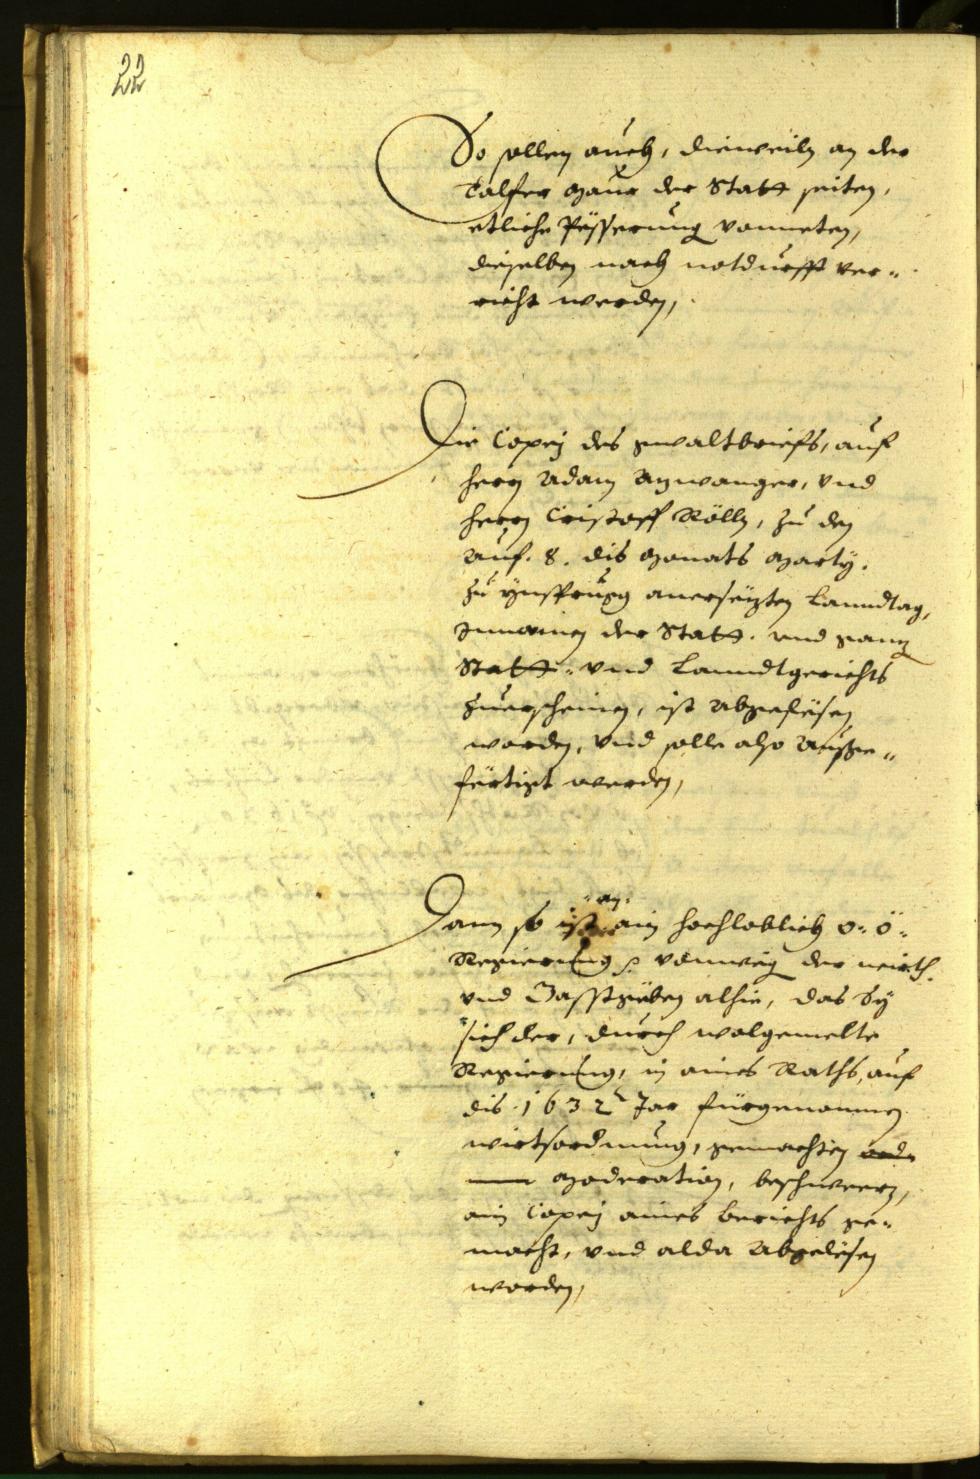 22
So sollen auch, dieweiln an der
Talfer Maur der Statt seiten,
etliche Pësserung vonneten,
dieselben nach notdurfft ver-
richt werden,
Die Copej des gwaltbriefs, auf
herrn Adam Anwanger, vnd
herrn Cristoff Röll, zu den
auf. 8. dis Monats Marty.
zu Ynsprugg angesëtzten Lanndtag,
Innamen der Statt. vnd ganz
Statt- vnd Lanndtgerichts
zuerscheinen, ist Abgelësen
worden, vnd solle also außge-
fërtigt werden,
Dann so ist an ain hochloblich o: ö:
Regierung vonweg der wirth
vnd Gasstgëben alhie, das Sÿ
sich der, durch wolgemelte
Regierung, in aines Raths, auf
dis 1632 Jar fürgenomnen
wirtsordnung, gemachten
Moderation, beschweern,
ain Copej aines berichts ge-
macht, vnd alda Abgelësen
worden,